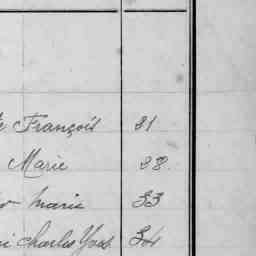 François 21
Marie 28.
Marie 33
Charles Yves 34